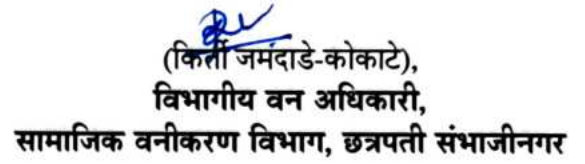 (किर्ती जमंदाडे-कोकाटे),
विभागीय वन अधिकारी,
सामाजिक वनीकरण विभाग, छत्रपती संभाजीनगर